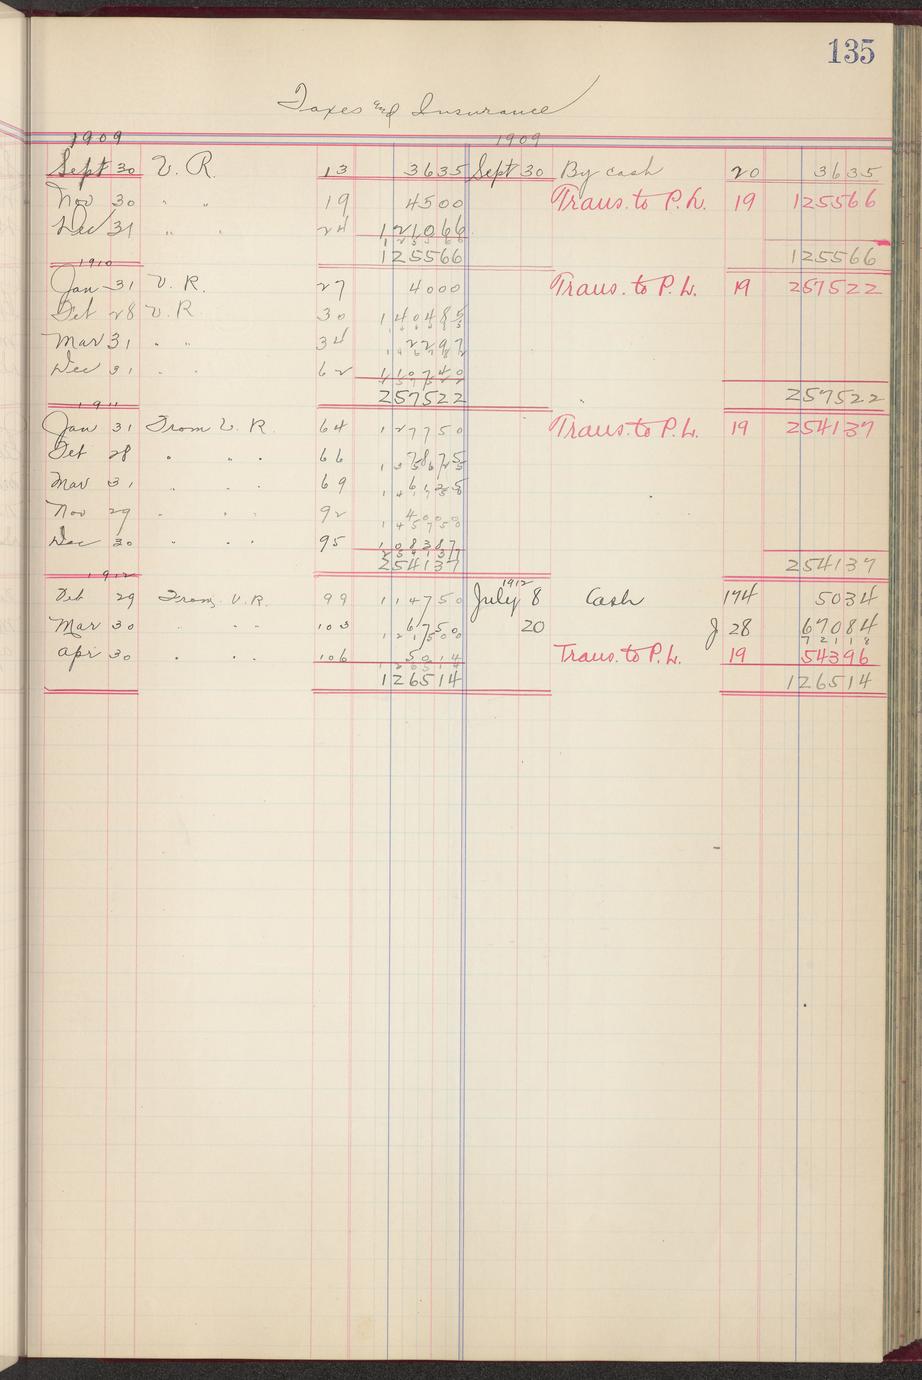 135
Taxes and Insurance
1909 1909
Sept 30 V. R. 13 3635 Sept 30 By cash 20 3635
Nov 30 " " 19 4500 Trans. to P. L. 19 125566
Dec 31 " " 24 121066
125566
125566 125566
1910
Jan 31 V. R. 27 4000 Trans. to P. L. 19 257522
Feb 28 V. R. 30 140485
Mar 31 " " 34 2297
146782
Dec 31 " " 62 110740
257522
257522 257522
1911
Jan 31 From V. R. 64 127750 Trans. to P. L. 19 254137
Feb 28 " " " 66 7875
135625
Mar 31 " " " 69 6125
Nov 29 " " " 92 4000
145750
Dec 30 " " " 95 108387
254137
254137 254137
1912 1912
Feb 29 From V. R. 99 114750 July 8 Cash 174 5034
Mar 30 " " " 103 6750 20 J 28 67084
121500 72118
Apr 30 " " 106 5014 Trans. to P. L. 19 54396
126514
126514 126514